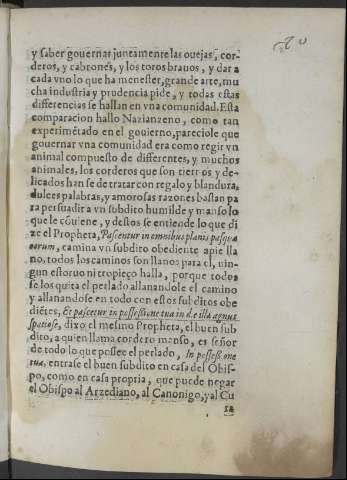 y saber gouernar juntamente las ouejas, cor-
deros, y cabrones, y los toros brauos, y dar a
cada vno lo que ha menester, grande arte, mu
cha industria y prudencia pide, y todas estas
differencias se hallan en vna comunidad. Esta
comparacion hallo Nazianzeno, como tan
experimẽtado en el gouierno, pareciole que
gouernar vna comunidad era como regir vn
animal compuesto de differentes, y muchos
animales, los corderos que son tiernos y de-
licados han se de tratar con regalo y blandura,
dulces palabras, y amorosas razones bastan pa
ra persuadir a vn subdito humilde y manso lo
que le cõuiene, y destos se entiende lo que di
ze el Propheta, Pascentur in omnibus planis pascua
eorum, camina vn subdito obediente a pie lla
no, todos los caminos son llanos para el, nin-
gun estoruo ni tropieço halla, porque todos
se los quita el perlado allanandole el camino
y allanandose en todo con estos subditos obe
diẽtes, Et pascetur in possessione tua in die illa agnus
spatiose, dixo el mesmo Propheta, el buen sub
dito, a quien llama cordero manso, es señor
de todo lo que possee el perlado, In possessione
tua, entrase el buen subdito en casa del Obis-
po, como en casa propria, que puede negar
el Obispo al Arzediano, al Canonigo, y al Cu